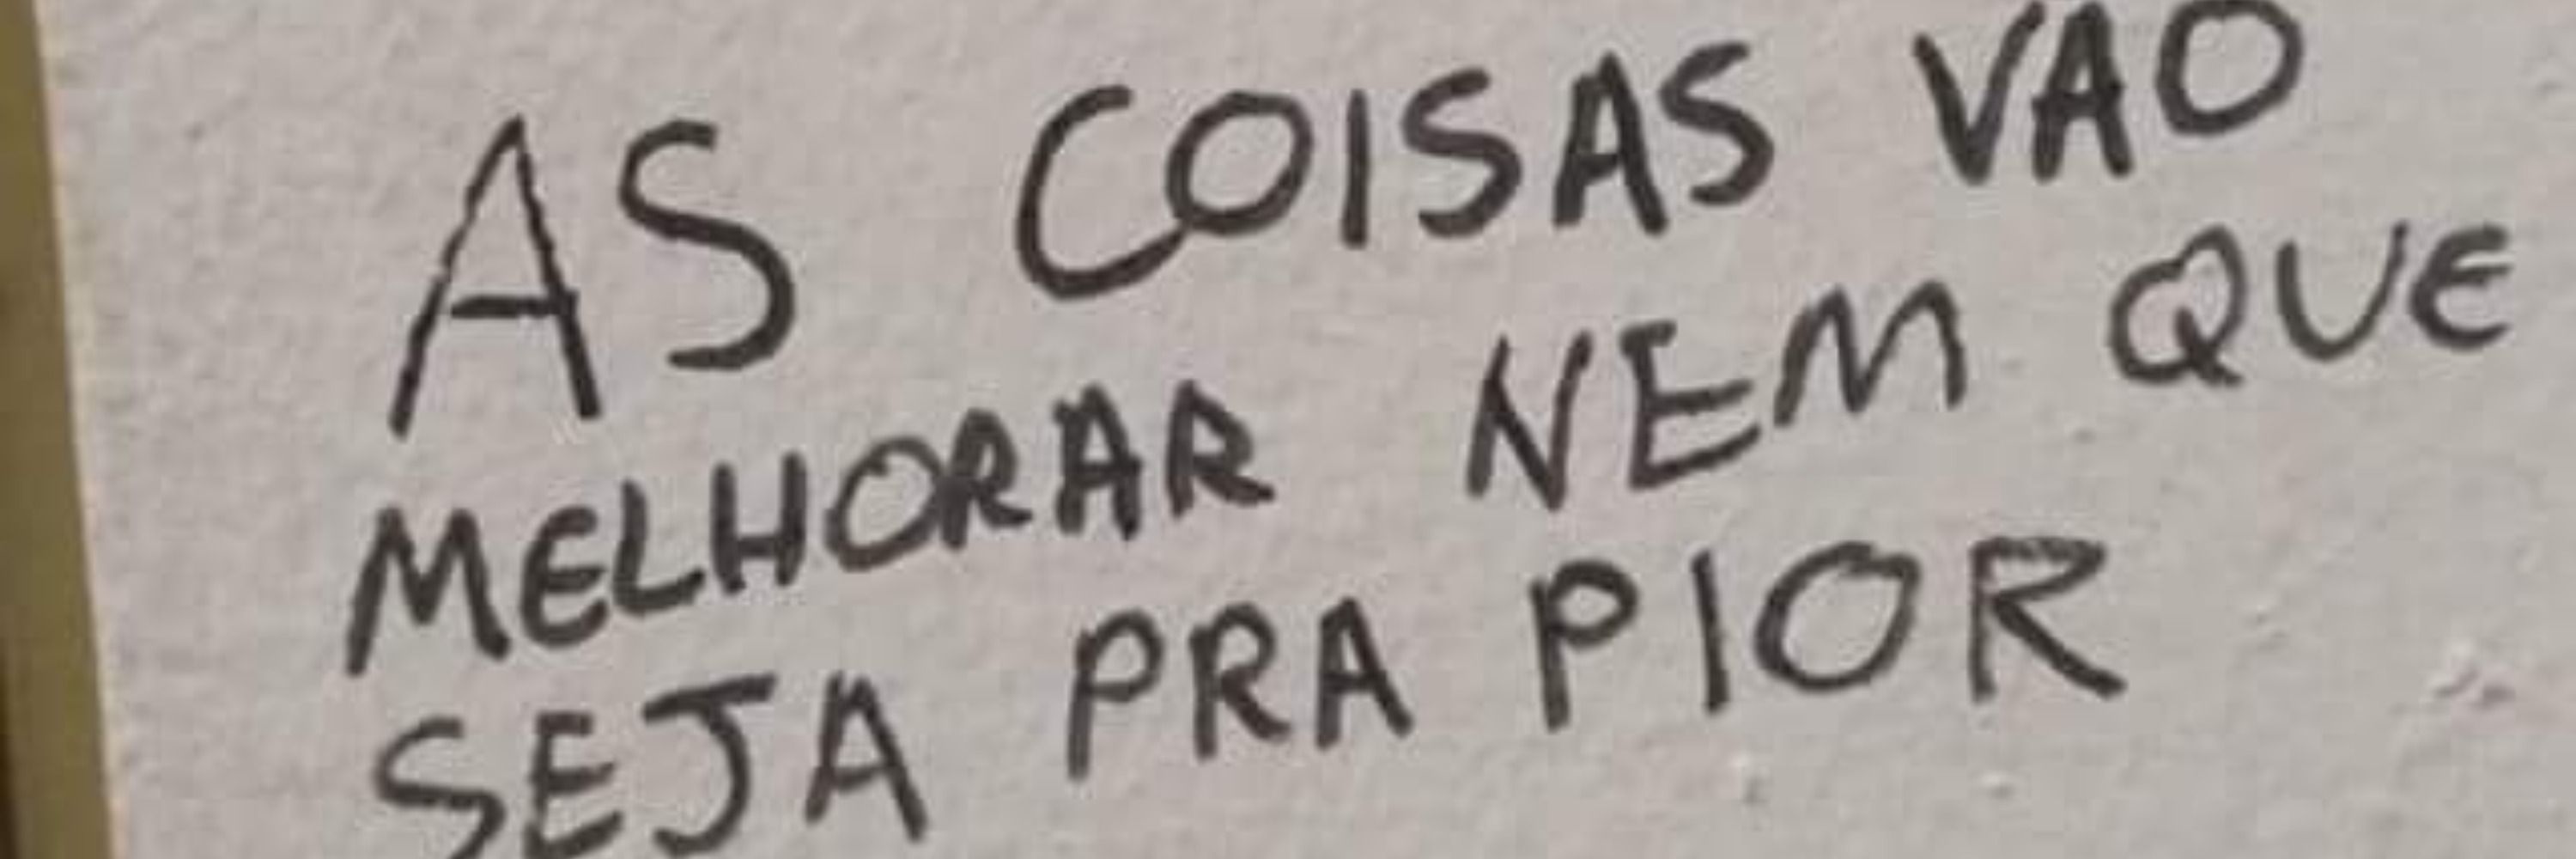 AS COISAS VAO
MELHORAR NEM QUE
SEJA PRA PIOR